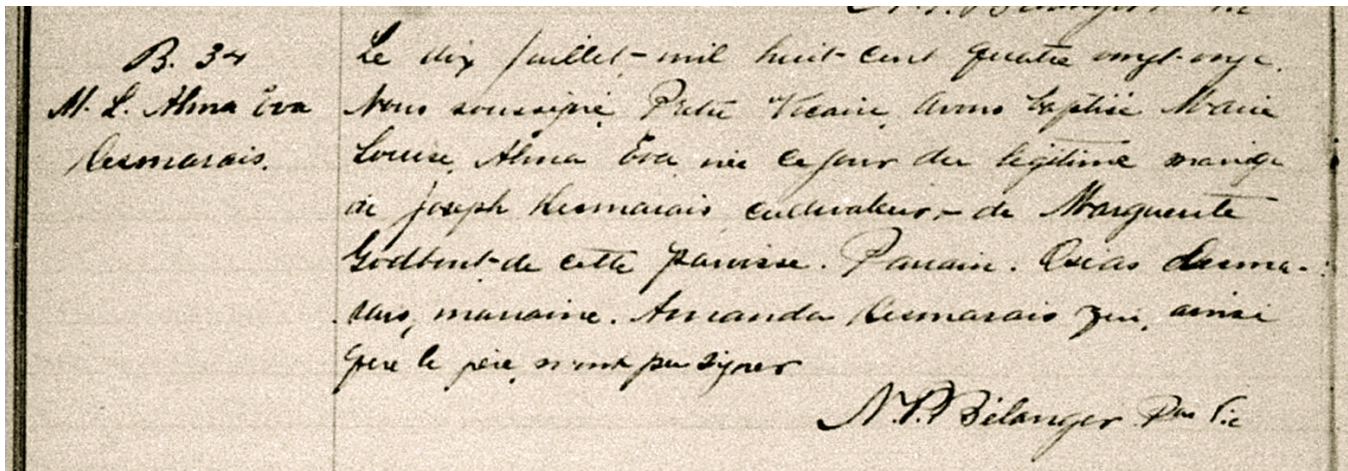 N. P. Bélanger Vic
B. 34
M. L. Alma Eva
Desmarais.
Le dix Juillet - mil huit-cent quatre vingt-onze.
Nous soussigné, Prêtre Vicaire, avons baptisé Marie
Louise, Alma Eva née ce jour du légitime mariage
de Joseph Desmarais cultivateur - de Marguerite
Godbout - de cette paroisse. Parrain. Oséas Desma-
rais, marraine. Amanda Desmarais qui, ainsi
que le père, n'ont pu signer
N. P. Bélanger Ptre Vic